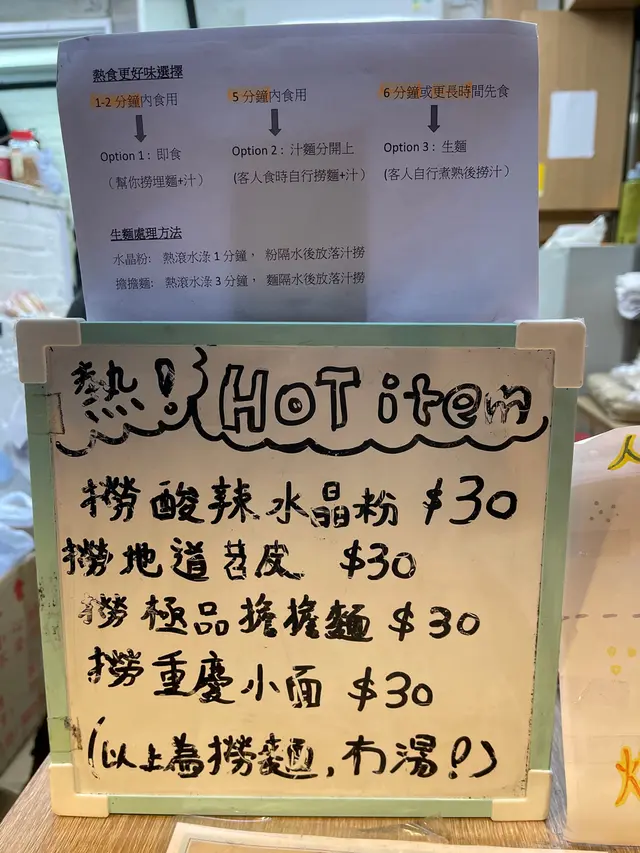 熟食更好味選擇
1-2 分鐘內食用 5 分鐘內食用 6 分鐘或更長時間先食
Option 1 : 即食 Option 2 : 汁麵分開上 Option 3 : 生麵
(幫你撈埋麵+汁) (客人食時自行撈麵+汁) (客人自行煮熟後撈汁)
生麵處理方法
水晶粉: 熱滾水淥 1 分鐘， 粉隔水後放落汁撈
擔擔麵: 熱滾水淥 3 分鐘， 麵隔水後放落汁撈
熱! HOT item
撈酸辣水晶粉 $30
撈地道苕皮 $30
撈極品擔擔麵 $30
撈重慶小面 $30
(以上為撈麵, 冇湯!)